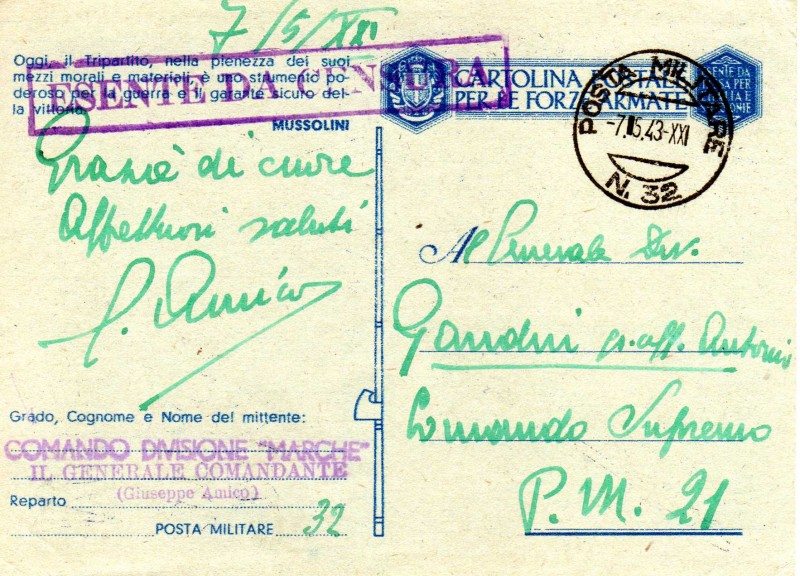 7/5/XXI
Oggi, il Tripartito, nella pienezza dei suoi
mezzi morali e materiali, è uno strumento po-
deroso per la guerra e il garante sicuro del-
la vittoria.
MUSSOLINI
ESENTE DA CENSURA
CARTOLINA POSTALE
PER LE FORZE ARMATE
POSTA MILITARE
-7.5.43-XXI
N. 32
Grazie di cuore
Affettuosi saluti
G. Amico
Al Generale Div.
Gandin gr. uff. Antonio
Comando Supremo
P.M. 21
Grado, Cognome e Nome del mittente:
COMANDO DIVISIONE "MARCHE"
IL GENERALE COMANDANTE
(Giuseppe Amico)
Reparto
POSTA MILITARE 32